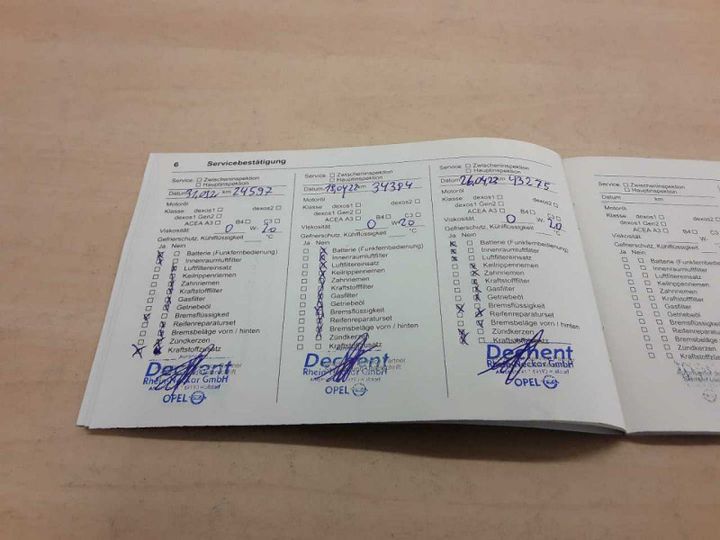 6 Servicebestätigung
Service: □ Zwischeninspektion
□ Hauptinspektion
Datum km 24597
Motoröl
Klasse dexos1 □ dexos2 □
dexos1 Gen2 □
ACEA A3 □ B4 □ C3 □
Viskosität 0 W- 20
Gefrierschutz, Kühlflüssigkeit °C
Ja Nein
Batterie (Funkfernbedienung)
Innenraumluftfilter
Luftfiltereinsatz
Keilrippenriemen
Zahnriemen
Kraftstofffilter
Gasfilter
Getriebeöl
Bremsflüssigkeit
Reifenreparaturset
Bremsbeläge vorn / hinten
Zündkerzen
Kraftstoffzusatz
Dechent
Rhein-Neckar GmbH
OPEL
Service: □ Zwischeninspektion
□ Hauptinspektion
Datum km 34384
Motoröl
Klasse dexos1 □ dexos2 □
dexos1 Gen2 □
ACEA A3 □ B4 □ C3 □
Viskosität 0 W- 20
Gefrierschutz, Kühlflüssigkeit °C
Ja Nein
Batterie (Funkfernbedienung)
Innenraumluftfilter
Luftfiltereinsatz
Keilrippenriemen
Zahnriemen
Kraftstofffilter
Gasfilter
Getriebeöl
Bremsflüssigkeit
Reifenreparaturset
Bremsbeläge vorn / hinten
Zündkerzen
Kraftstoffzusatz
Dechent
Rhein-Neckar GmbH
OPEL
Service: □ Zwischeninspektion
□ Hauptinspektion
Datum 26.04.22 km 43275
Motoröl
Klasse dexos1 □ dexos2 □
dexos1 Gen2 □
ACEA A3 □ B4 □ C3 □
Viskosität 0 W- 20
Gefrierschutz, Kühlflüssigkeit °C
Ja Nein
Batterie (Funkfernbedienung)
Innenraumluftfilter
Luftfiltereinsatz
Keilrippenriemen
Zahnriemen
Kraftstofffilter
Gasfilter
Getriebeöl
Bremsflüssigkeit
Reifenreparaturset
Bremsbeläge vorn / hinten
Zündkerzen
Kraftstoffzusatz
Dechent
Rhein-Neckar GmbH
OPEL
Service: □ Zwischeninspektion
□ Hauptinspektion
Datum km
Motoröl
Klasse dexos1 □
dexos1 Gen2 □
ACEA A3 □
Viskosität
Gefrierschutz, Kühlflüssigkeit
Ja Nein
Batterie
Innenraumluftfilter
Luftfiltereinsatz
Keilrippenriemen
Zahnriemen
Kraftstofffilter
Gasfilter
Getriebeöl
Bremsflüssigkeit
Reifenreparaturset
Bremsbeläge
Zündkerzen
Kraftstoffzusatz